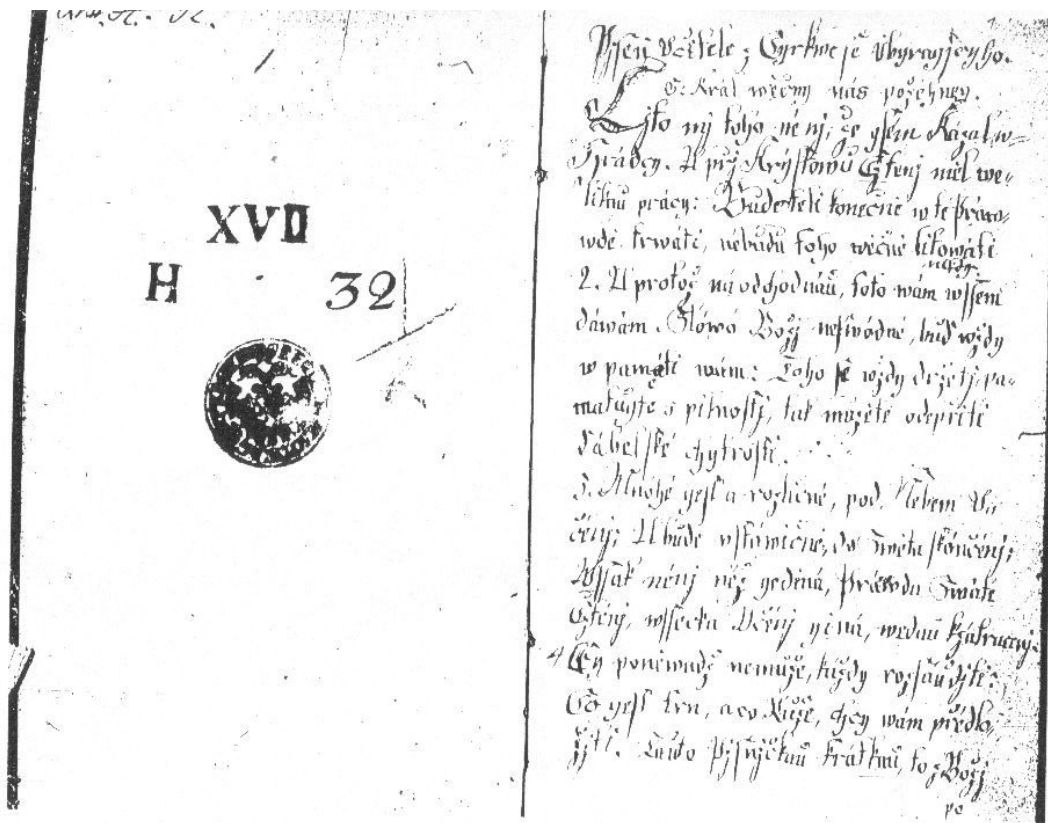 XVII
H 32
Pjseň Učitele z Cyrkwe se Ubyragjcyho.
G: Král wěčny nás požehney.
Ljto mj toho nenj, že gsem Kázal w
Hrádcy. A při Krystowu Čtenj měl we-
liku prácy: Budeteli konečně w té Praw-
wdě trwati, nebudu toho wěčně litowati
2. A protož na odchodnau, toto wám wssem
dáwám. Slowo Božj neswodné, bud wždy
w paměti wám: Toho se wždy držeti, pa-
matugte s pilnostj, tak možete odepřiti
dábelské chytrosti.
3. Mnohé gest a rozličné, pod Nebem U-
čenj; A bude ustawičně, do Swěta skončenj;
Wssak nenj než gediná, Prawda Swaté
Čtenj, wssecka Učenj giná, wedau k zahracenj.
4 Ey poněwadž nemuže, každy rozsauditi:
Co gest trn, a co Ruže, chcy wám předlo-
žiti. Tauto Pjsničkau kratkau, to z Božj
po